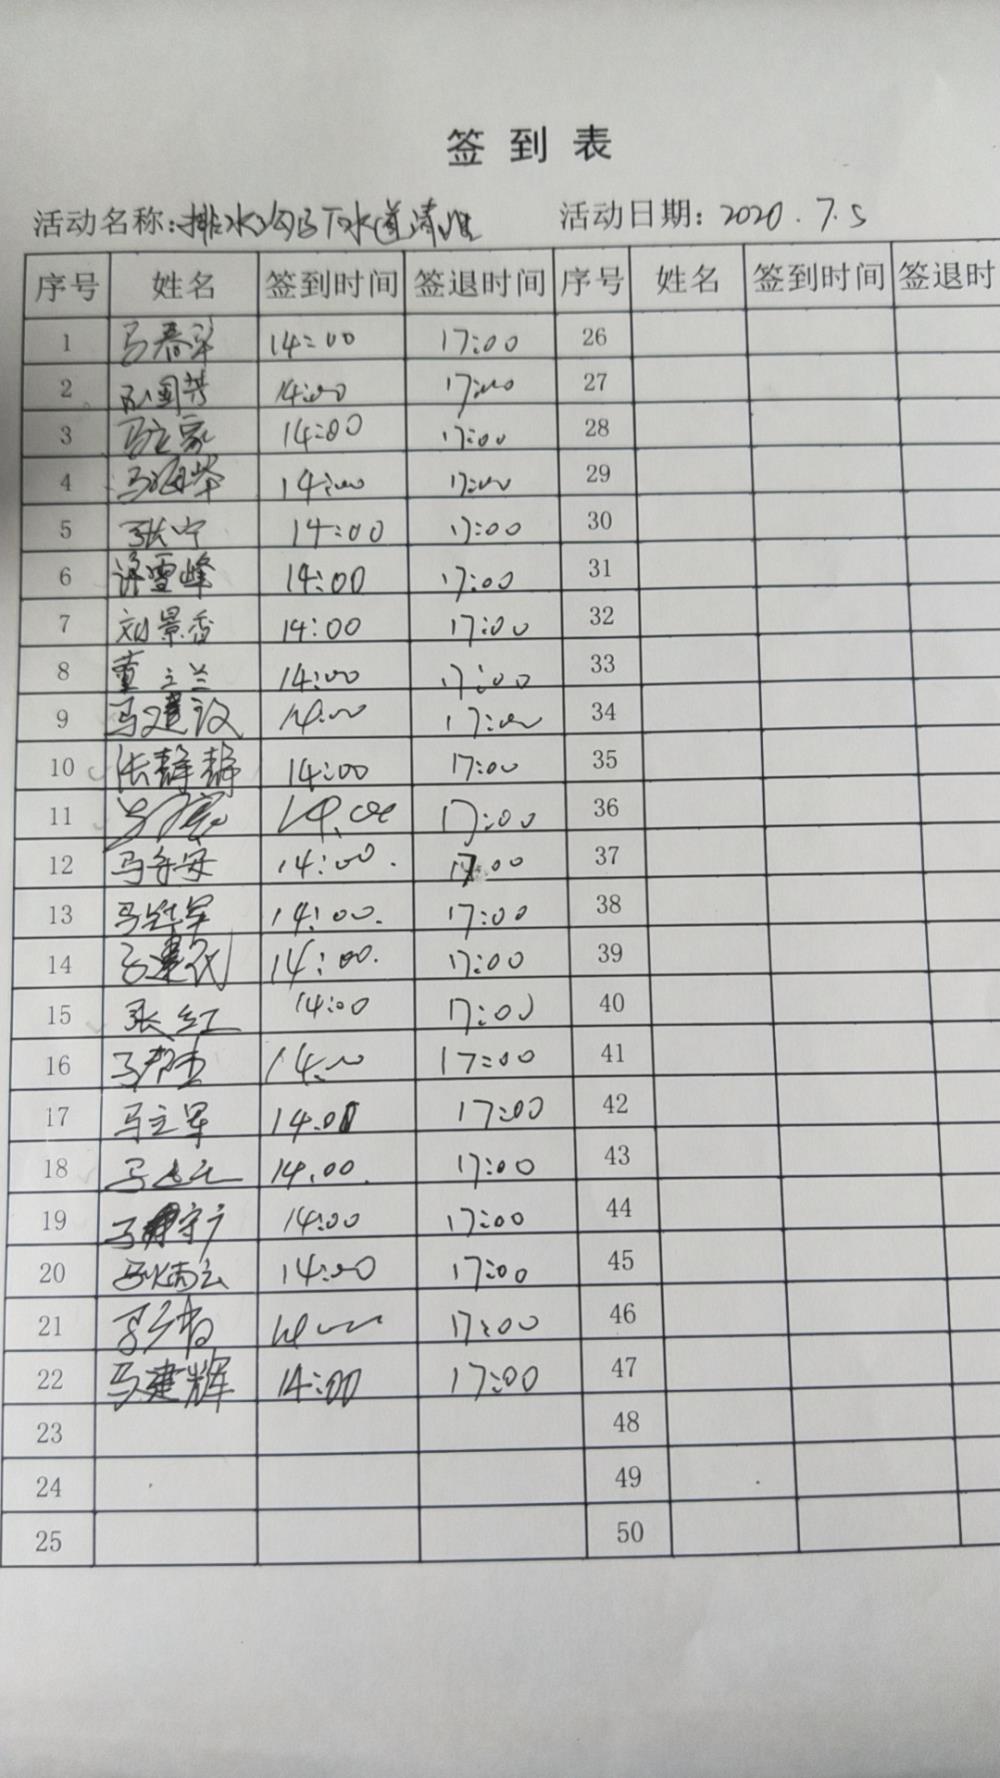 签到表
活动名称:排水沟及下水道清理 活动日期:2020.7.5
序号 姓名 签到时间 签退时间 序号 姓名 签到时间 签退时
1 马春 14:00 17:00 26
2 国芳 14:00 17:00 27
3 马立家 14:00 17:00 28
4 马海 14:00 17:00 29
5 张宁 14:00 17:00 30
6 许雪峰 14:00 17:00 31
7 刘景香 14:00 17:00 32
8 董立兰 14:00 17:00 33
9 马建设 14:00 17:00 34
10 张静静 14:00 17:00 35
11 14:00 17:00 36
12 马守安 14:00. 17:00 37
13 马 军 14:00. 17:00 38
14 马建民 14:00. 17:00 39
15 张红 14:00 17:00 40
16 马 14:00 17:00 41
17 马立军 14.00 17:00 42
18 马 14.00. 17:00 43
19 马 守广 14:00 17:00 44
20 马炳云 14:00 17:00 45
21 17:00 46
22 马建辉 14:00 17:00 47
23 48
24 49
25 50